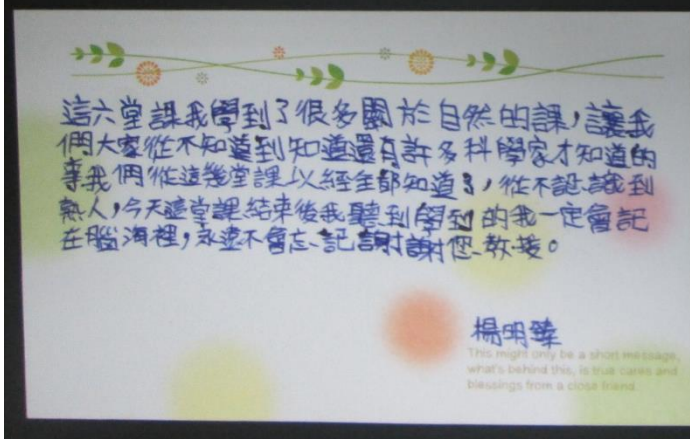 這六堂課我學到了很多關於自然的課，讓我
們大家從不知道到知道還有許多科學家才知道的
事我們從這幾堂課以經全部知道了，從不認識到
熟人，今天這堂課結束後我聽到學到的我一定會記
在腦海裡，永遠不會忘記謝謝您教授。
楊明臻
This might only be a short message,
what's behind this, is true cares and
blessings from a close friend.